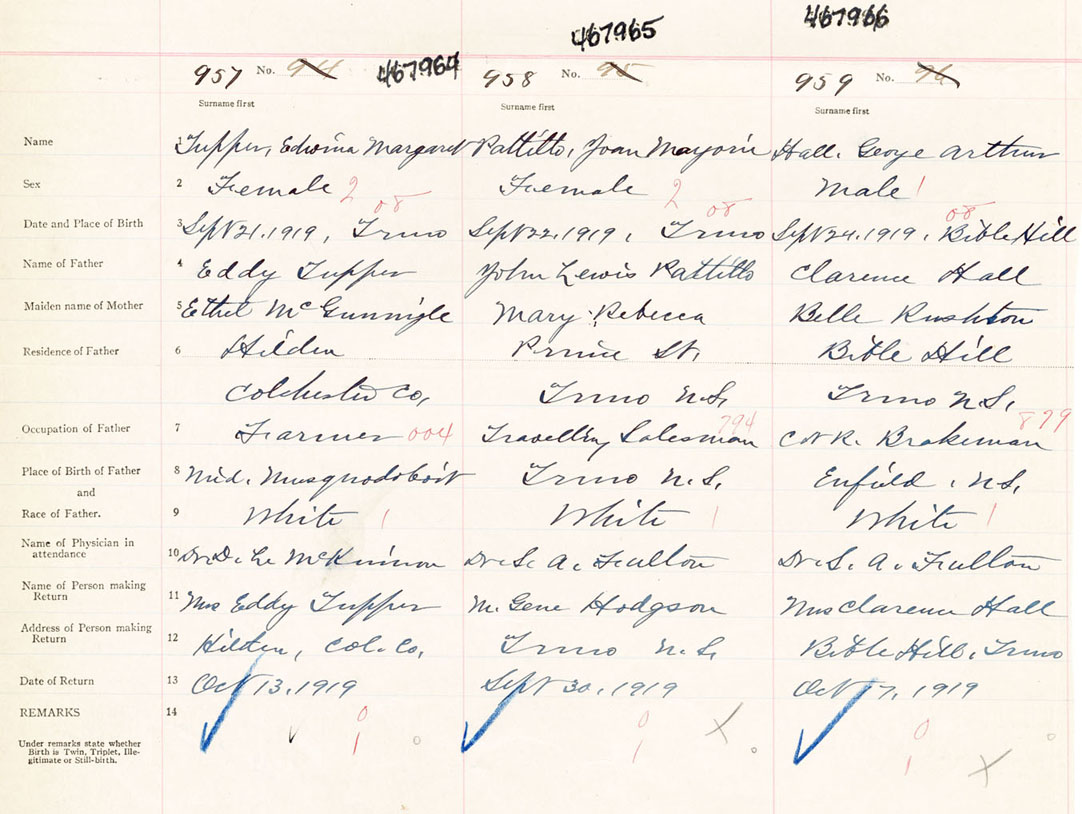 467964 467965 467966
957 No. 94 958 No. 95 959 No. 96
Surname first Surname first Surname first
Name 1 Tupper, Edwina Margaret Pattillo, Joan Marjorie Hall. George Arthur
Sex 2 Female 2 Female 2 Male 1
08 08 08
Date and Place of Birth 3 Sept 21. 1919, Truro Sept 22. 1919, Truro Sept 24. 1919, Bible Hill
Name of Father 4 Eddy Tupper John Lewis Pattillo Clarence Hall
Maiden name of Mother 5 Ethel McGunnigle Mary Rebecca Belle Rushton
Residence of Father 6 Hilden Prince St. Bible Hill
Colchester Co, Truro N.S. Truro N.S.
Occupation of Father 7 Farmer 004 Travelling Salesman 794 Brakeman 879
Place of Birth of Father 8 Mid. Musquodoboit Truro N.S. Enfield, N.S.
and
Race of Father. 9 White 1 White 1 White 1
Name of Physician in
attendance 10 Dr. D. McKinnon Dr. S. A. Fulton Dr. S. A. Fulton
Name of Person making
Return 11 Mrs Eddy Tupper M. Gene Hodgson Mrs Clarence Hall
Address of Person making
Return 12 Hilden, Col. Co, Truro N.S. Bible Hill, Truro
Date of Return 13 Oct 13, 1919 Sept 30, 1919 Oct 7, 1919
REMARKS 14 0 0 0
1 1 1
Under remarks state whether
Birth is Twin, Triplet, Ille-
gitimate or Still-birth.